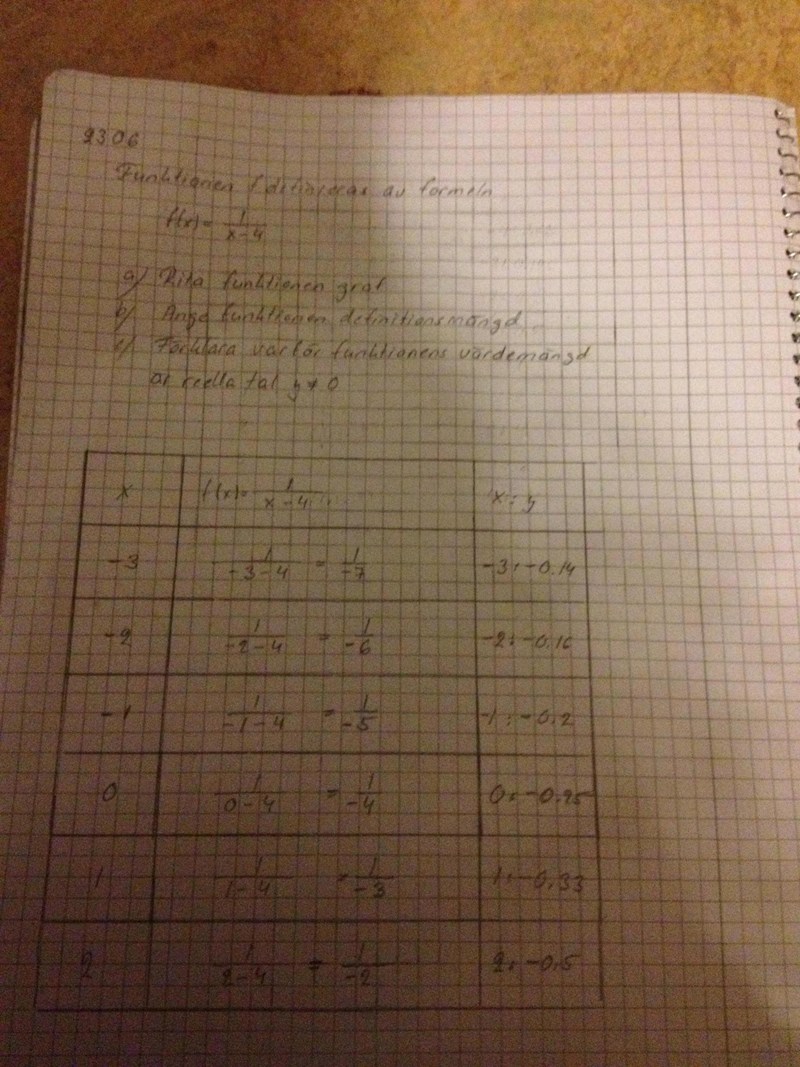 2306
Funktionen f definieras av formeln
f(x) = 1/(x-4)
a) Rita funktionen graf
b) Ange funktionen definitionsmängd
c) Förklara varför funktionens värdemängd
är reella tal y ≠ 0
x f(x) = 1/(x-4) x ; y
-3 1/(-3-4) = 1/-7 -3 ; -0.14
-2 1/(-2-4) = 1/-6 -2 ; -0.16
-1 1/(-1-4) = 1/-5 -1 ; -0.2
0 1/(0-4) = 1/-4 0 ; -0.25
1 1/(1-4) = 1/-3 1 ; -0.33
2 1/(2-4) = 1/-2 2 ; -0.5